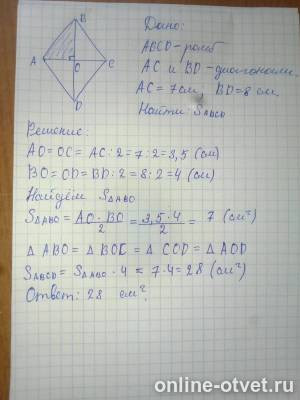 B
A
O
C
D
Дано:
ABCD - ромб
AC и BD - диагонали
AC = 7 см, BD = 8 см
Найти: S_ABCD
Решение:
AO = OC = AC : 2 = 7 : 2 = 3,5 (см)
BO = OD = BD : 2 = 8 : 2 = 4 (см)
Найдём S_ΔABO
S_ΔABO = AO · BO / 2 = 3,5 · 4 / 2 = 7 (см²)
Δ ABO = Δ BOC = Δ COD = Δ AOD
S_ABCD = S_ΔABO · 4 = 7 · 4 = 28 (см²)
Ответ: 28 см².
online-otvet.ru